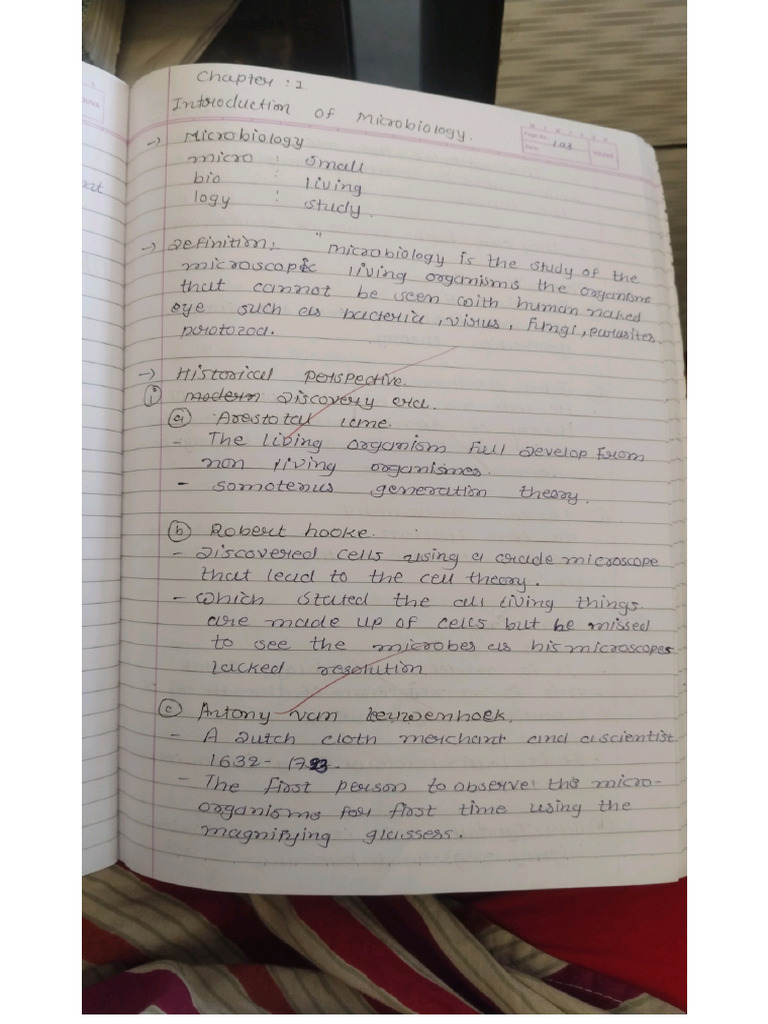 Chapter : 1
Introduction of Microbiology.
Page No. 103
Date
→ Microbiology
micro : small
bio : living
logy : study.
→ Definition: "microbiology is the study of the
microscopic living organisms the organisms
that cannot be seen with human naked
eye such as bacteria, virus, fungi, parasites
porotozoa.
→ Historical perspective.
(i) modern Discovery era.
(a) Arestotal
- The living organism full develop from
non living organismes.
- somotenus generation theory.
(b) Robert hooke.
- Discovered cells using a crade microscope
that lead to the cell theory.
- which stated the all living things
are made up of cells but he missed
to see the microbes as his microscopes
lacked resolution
(c) Antony van leeuwenhoek.
- A Dutch cloth merchant and a scientist
1632- 1723.
- The first person to observe the micro-
organisms for first time using the
magnifying glassess.